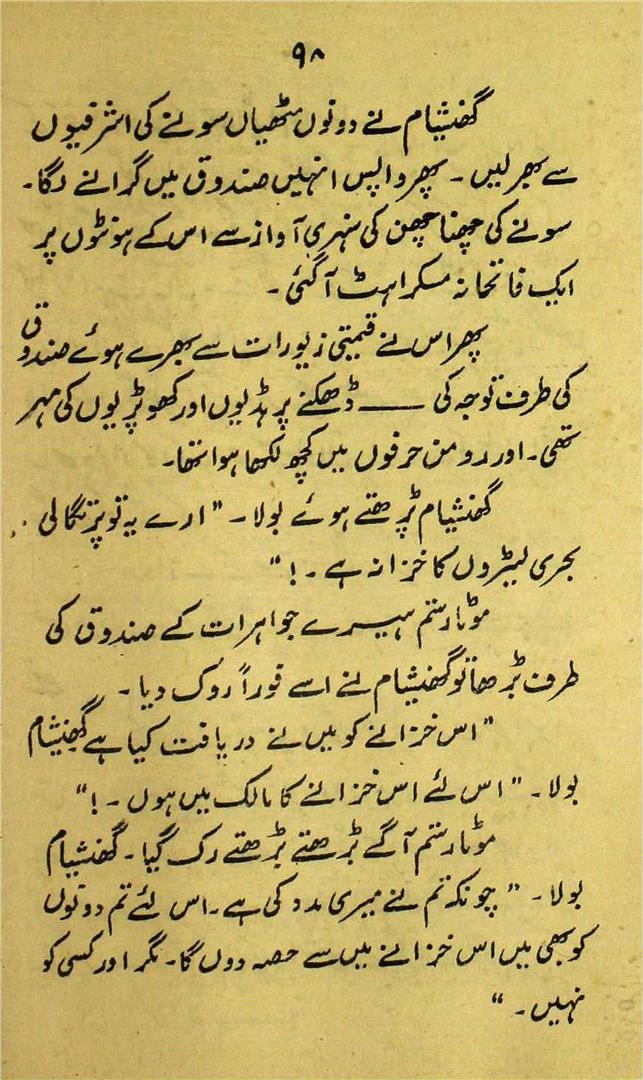 ۹۸
گھنشیام نے دونوں مٹھیاں سونے کی اشرفیوں
سے بھر لیں ۔ پھر واپس انہیں صندوق میں گرانے لگا ۔
سونے کی چھنا چھن کی سنہری آواز سے اس کے ہونٹوں پر
ایک فاتحانہ مسکراہٹ آ گئی ۔
پھر اس نے قیمتی زیورات سے بھرے ہوئے صندوق
کی طرف توجہ کی ــــــ ڈھکنے پر ہڈیوں اور کھوپڑیوں کی مہر
تھی ۔ اور رومن حرفوں میں کچھ لکھا ہوا تھا ۔
گھنشیام پڑھتے ہوئے بولا ۔ "ارے یہ تو پرتگالی
بحری لیٹروں کا خزانہ ہے ۔ ! "
موٹا رستم ہیرے جواہرات کے صندوق کی
طرف بڑھا تو گھنشیام نے اسے فوراً روک دیا ۔
"اس خزانے کو میں نے دریافت کیا ہے گھنشیام
بولا ۔ "اس لئے اس خزانے کا مالک میں ہوں ۔ ! "
موٹا رستم آگے بڑھتے بڑھتے رک گیا ۔ گھنشیام
بولا ۔ " چونکہ تم نے میری مدد کی ہے ۔ اس لئے تم دونوں
کو بھی میں اس خزانے میں سے حصہ دوں گا ۔ مگر اور کسی کو
نہیں ۔ "